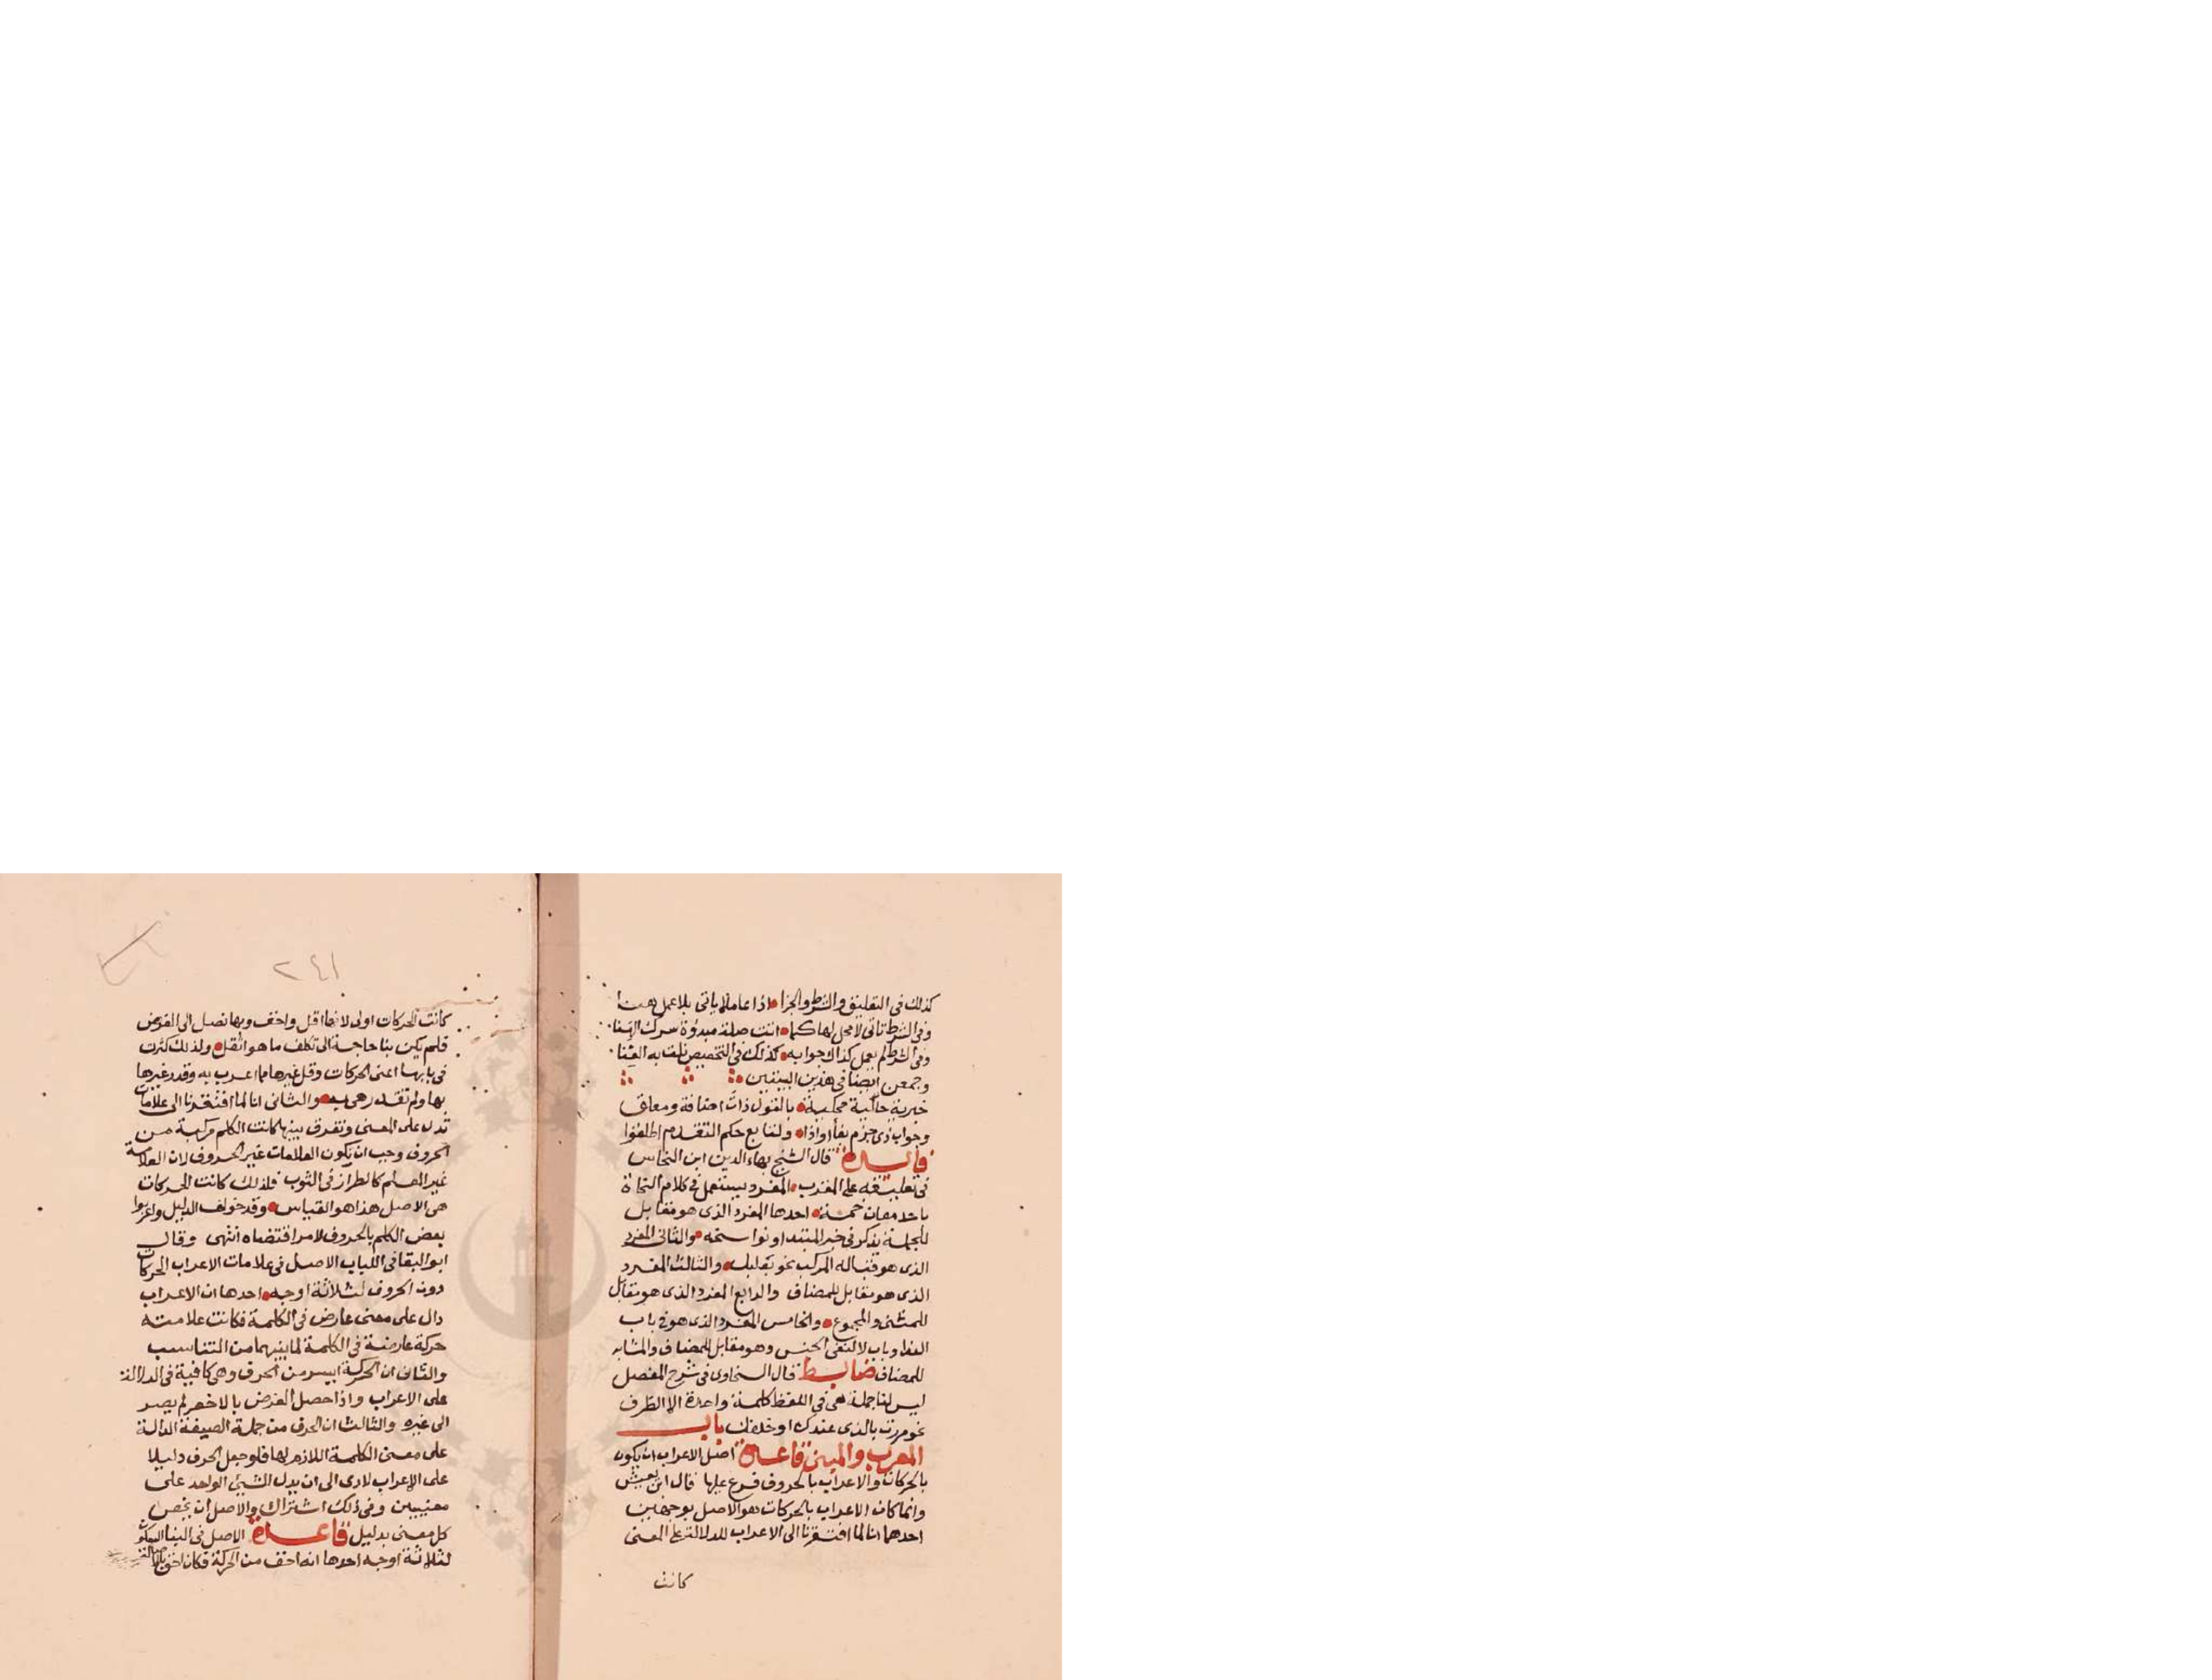 كذلك في التعليق والشرط والجزا اذا عامل ياتي بلا عمل هنا
وفي الشرط تاتي لا محل لها كما اتت صلة مبدؤة سرك الهنا
وفي الشرط لم يعمل كذاك جوابه كذلك في التخصيص نلت به الغنا
وجمعن ايضا في هذين البيتين
خبرية حالية محكية بالقول ذات اضافة ومعلق
وجواب ذي جزم بفا او اذا ولتابع حكم التقدم اطلقوا
فائدة قال الشيخ بهاء الدين ابن النحاس
في تعليقه على المقرب المفرد يستعمل في كلام النحاة
باحد معان خمسة احدها المفرد الذي هو مقابل
للجملة يذكر في خبر المبتدا ونواسخه والثاني المفرد
الذي هو قبالة المركب نحو بعلبك والثالث المفرد
الذي هو مقابل للمضاف والرابع المفرد الذي هو مقابل
للمثنى والمجموع والخامس المفرد الذي هو في باب
الندا وباب لا لنفي الجنس وهو مقابل للمضاف والمشابه
للمضاف ضابط قال السخاوي في شرح المفصل
ليس لنا جملة هي في اللفظ كلمة واحدة الا الظرف
نحو مررت بالذي عندك او خلفك باب
المعرب والمبني قاعدة اصل الاعراب ان يكون
بالحركات والاعراب بالحروف فرع عليها قال ابن يعيش
وانما كان الاعراب بالحركات هو الاصل لوجهين
احدهما انا لما افتقرنا الى الاعراب للدلالة على المعنى
كانت
٢٤١
كانت الحركات اولى لانها اقل واخف وبها نصل الى الغرض
فلم يكن بنا حاجة الى تكلف ما هو اثقل ولذلك كثرت
في بابها اعنى الحركات وقل غيرها مما اعرب به وقدر غيرها
بها ولم تقدر هي به والثاني انا لما افتقرنا الى علامات
تدل على المعنى وتفرق بينها كانت الكلم مركبة من
الحروف وجب ان يكون العلامات غير الحروف لان العلامة
غير المعلم كالطراز في الثوب فلذلك كانت الحركات
هي الاصل هذا هو القياس وقد خولف الدليل واعربوا
بعض الكلم بالحروف لامر اقتضاه انتهى وقال
ابو البقا في اللباب الاصل في علامات الاعراب الحركات
دون الحروف لثلاثة اوجه احدها ان الاعراب
دال على معنى عارض في الكلمة فكانت علامته
حركة عارضة في الكلمة لما بينهما من التناسب
والثاني ان الحركة ايسر من الحرف وهي كافية في الدلالة
على الاعراب واذا حصل الغرض بالاخصر لم يصر
الى غيره والثالث ان الحرف من جملة الصيغة الدالة
على معنى الكلمة اللازم لها فلو جعل الحرف دليلا
على الاعراب لادى الى ان يدل الشيئ الواحد على
معنيين وفي ذلك اشتراك والاصل ان يخص
كل معنى بدليل قاعدة الاصل في البنا السكون
لثلاثة اوجه احدها انه اخف من الحركة فكان احق بالاصالة